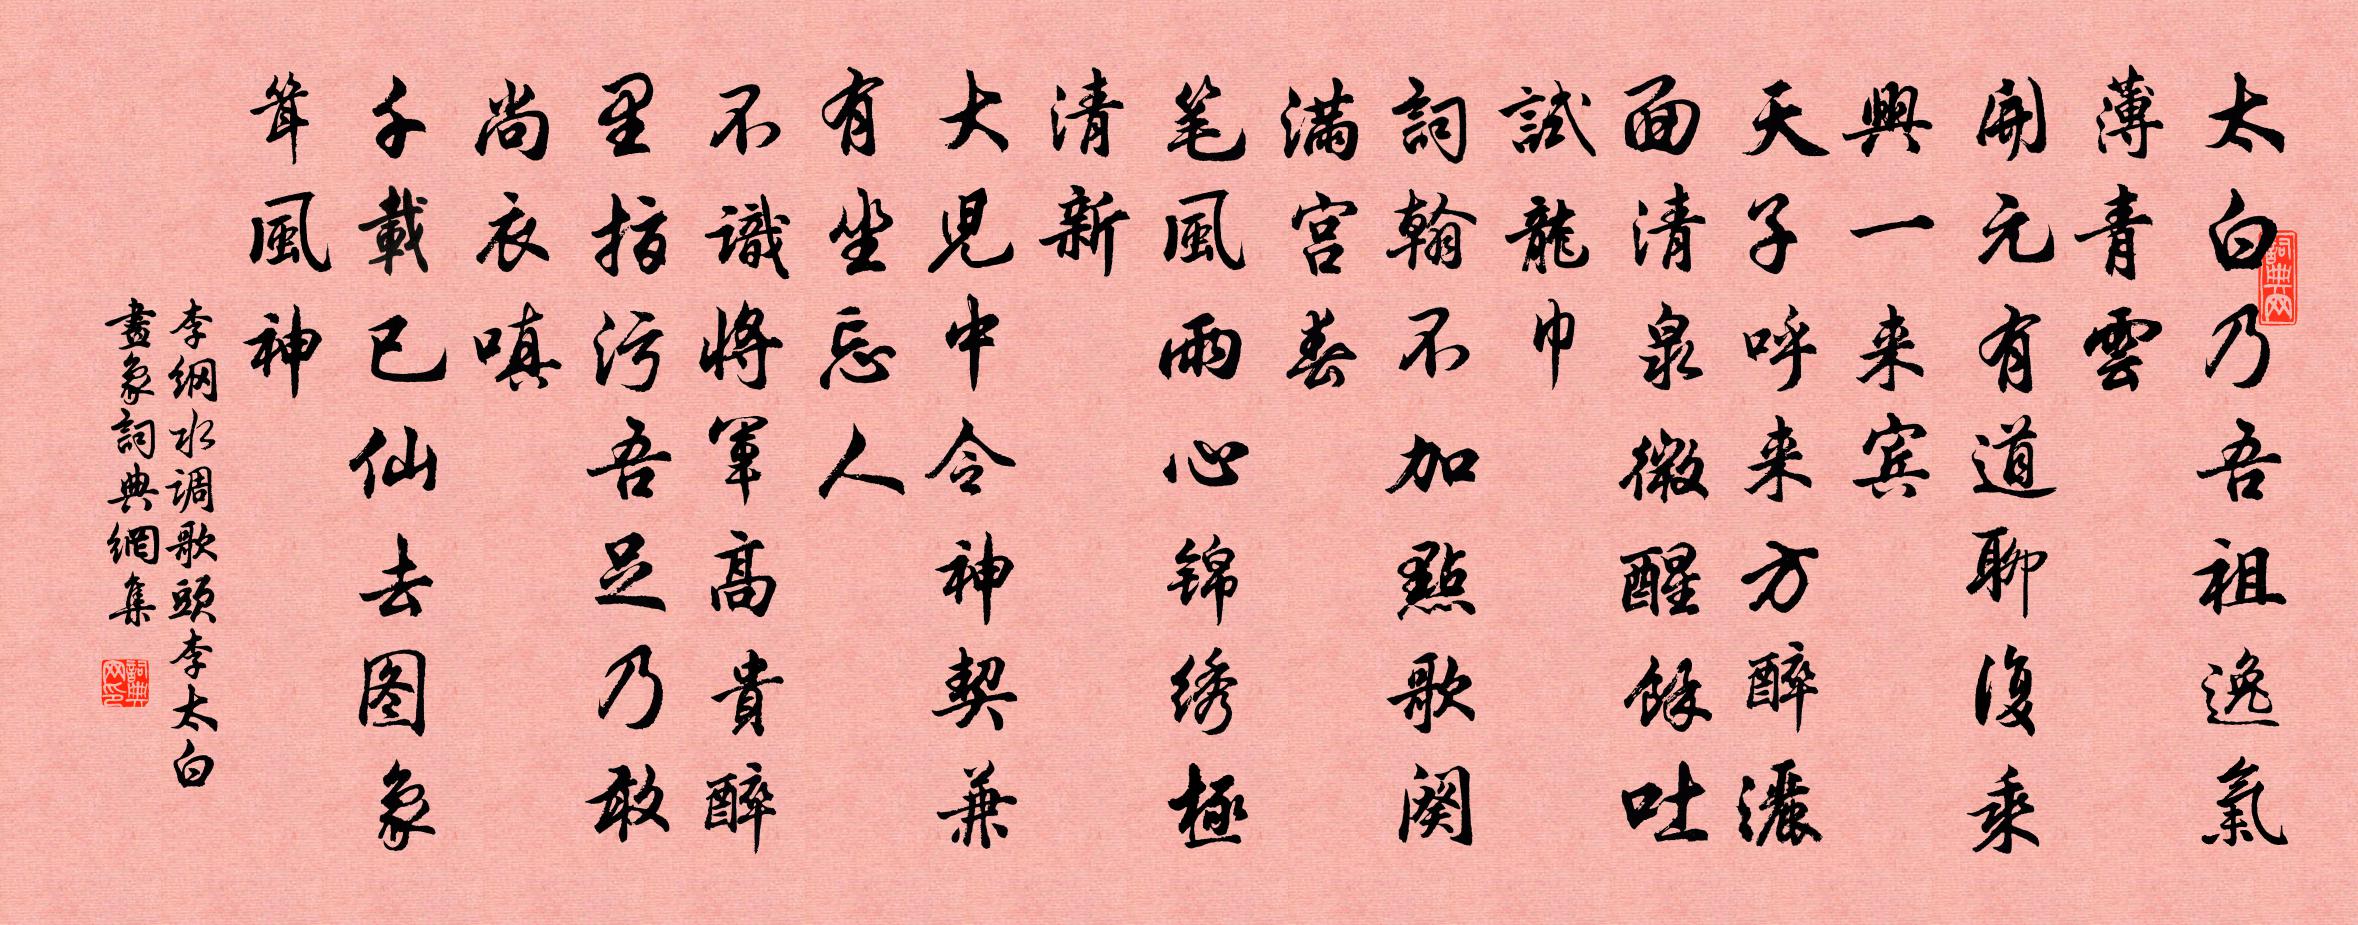 太白乃吾祖逸氣
薄青雲
開元有道聊復乘
興一来宾
天子呼来方醉灑
面清泉微醒餘吐
試龍巾
詞翰不加點歌闋
滿宫春
笔風雨心锦绣極
清新
大兒中令神契兼
有坐忘人
不識將軍高貴醉
里指污吾足乃敢
尚衣嗔
千載已仙去图象
耸風神
李纲水调歌頭李太白
畫象詞典網集
詞典网
詞典网印